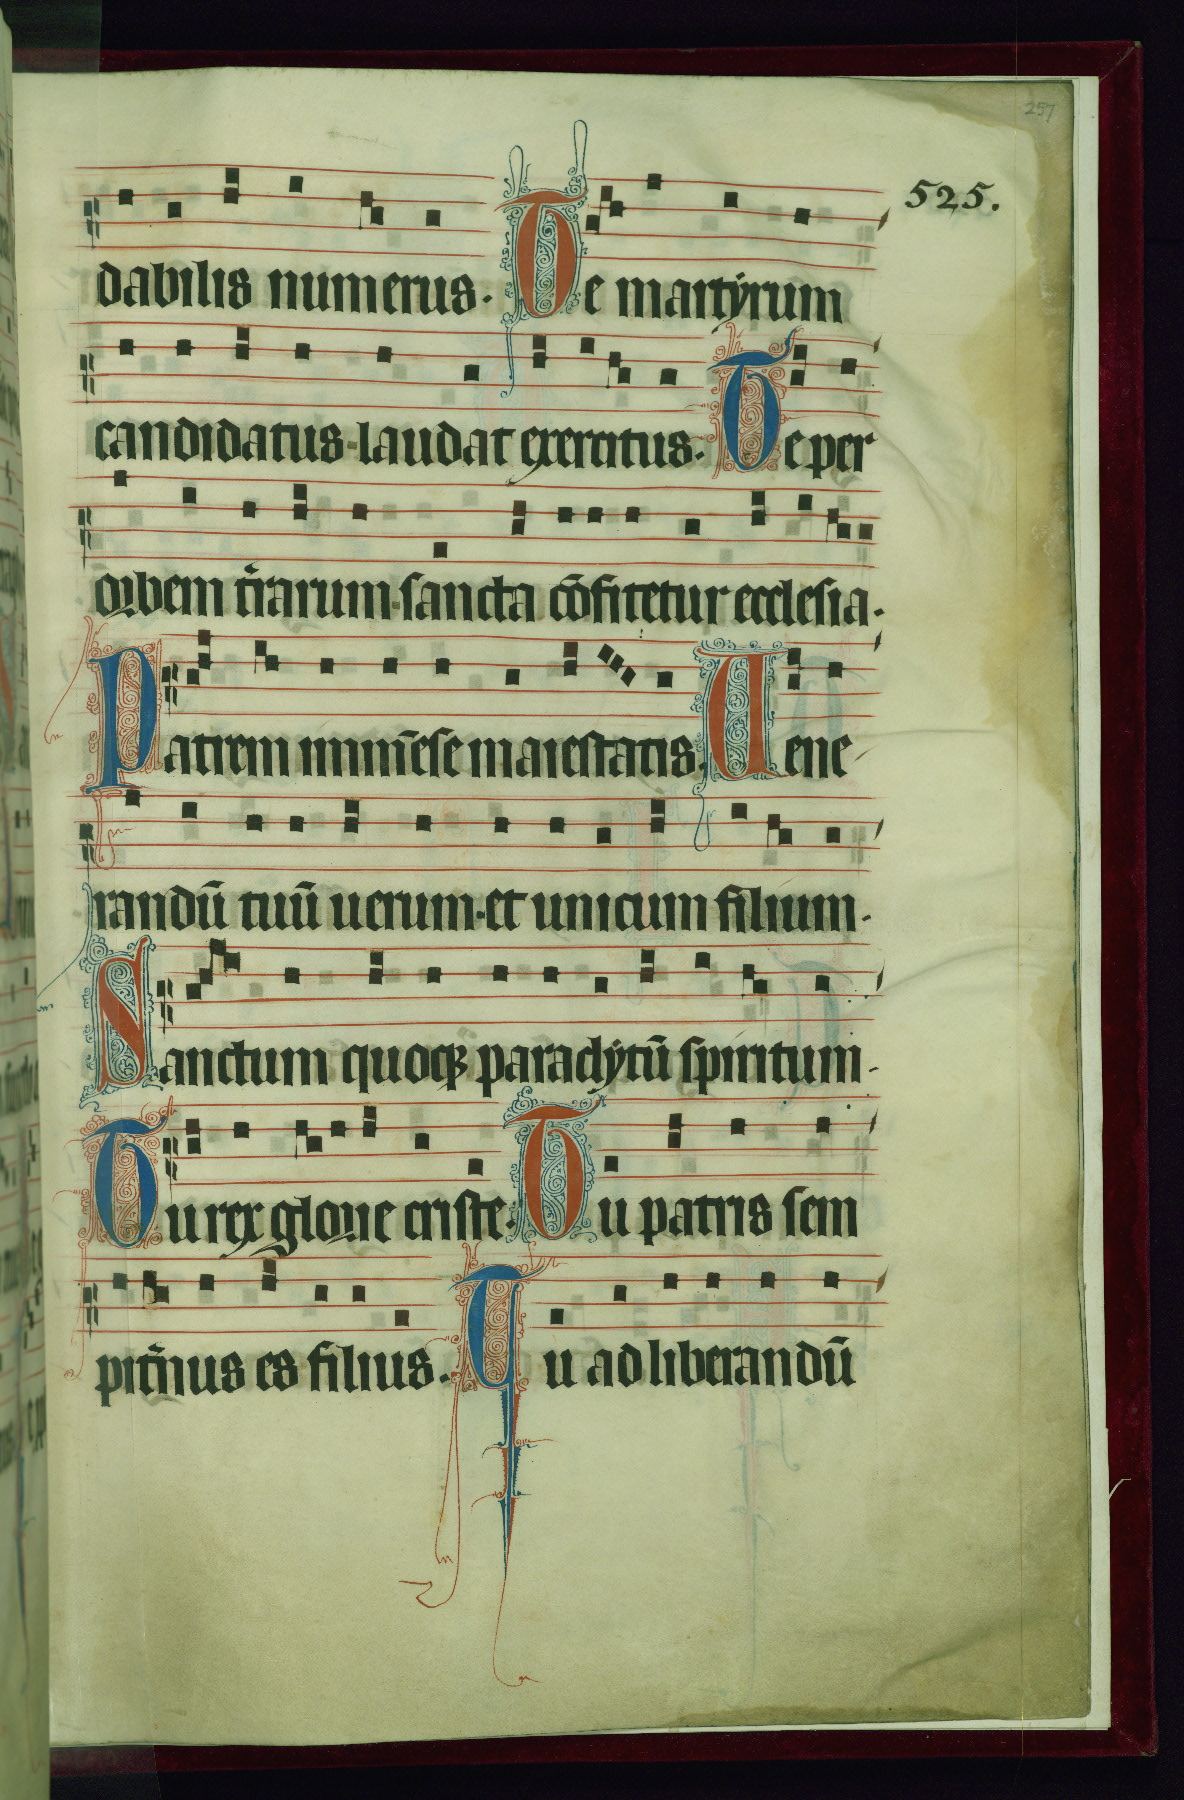 257
525.
dabilis numerus. Te martẏrum
candidatus laudat exercitus. Te per
orbem tr̄arum sancta cōfitetur ecclesia.
Patrem inmēse maiestatis. Uene
randū tuū uerum et unicum filium.
Sanctum quoqꝫ paraclẏtū spiritum.
Tu rex glorie criste. Tu patris sem
pit̄nus es filius. Tu ad liberandū